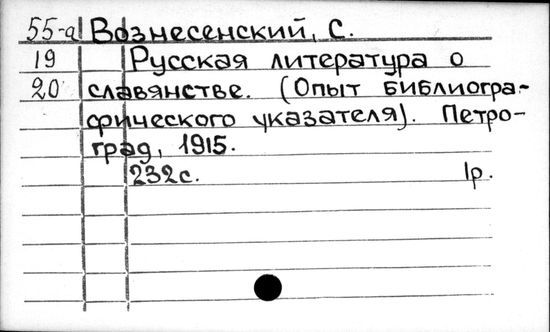 55-а Вознесенский, С.
19 Русская литература о
20 славянстве. (Опыт библиогра-
фического указателя). Петро-
град, 1915.
232с. 1р.